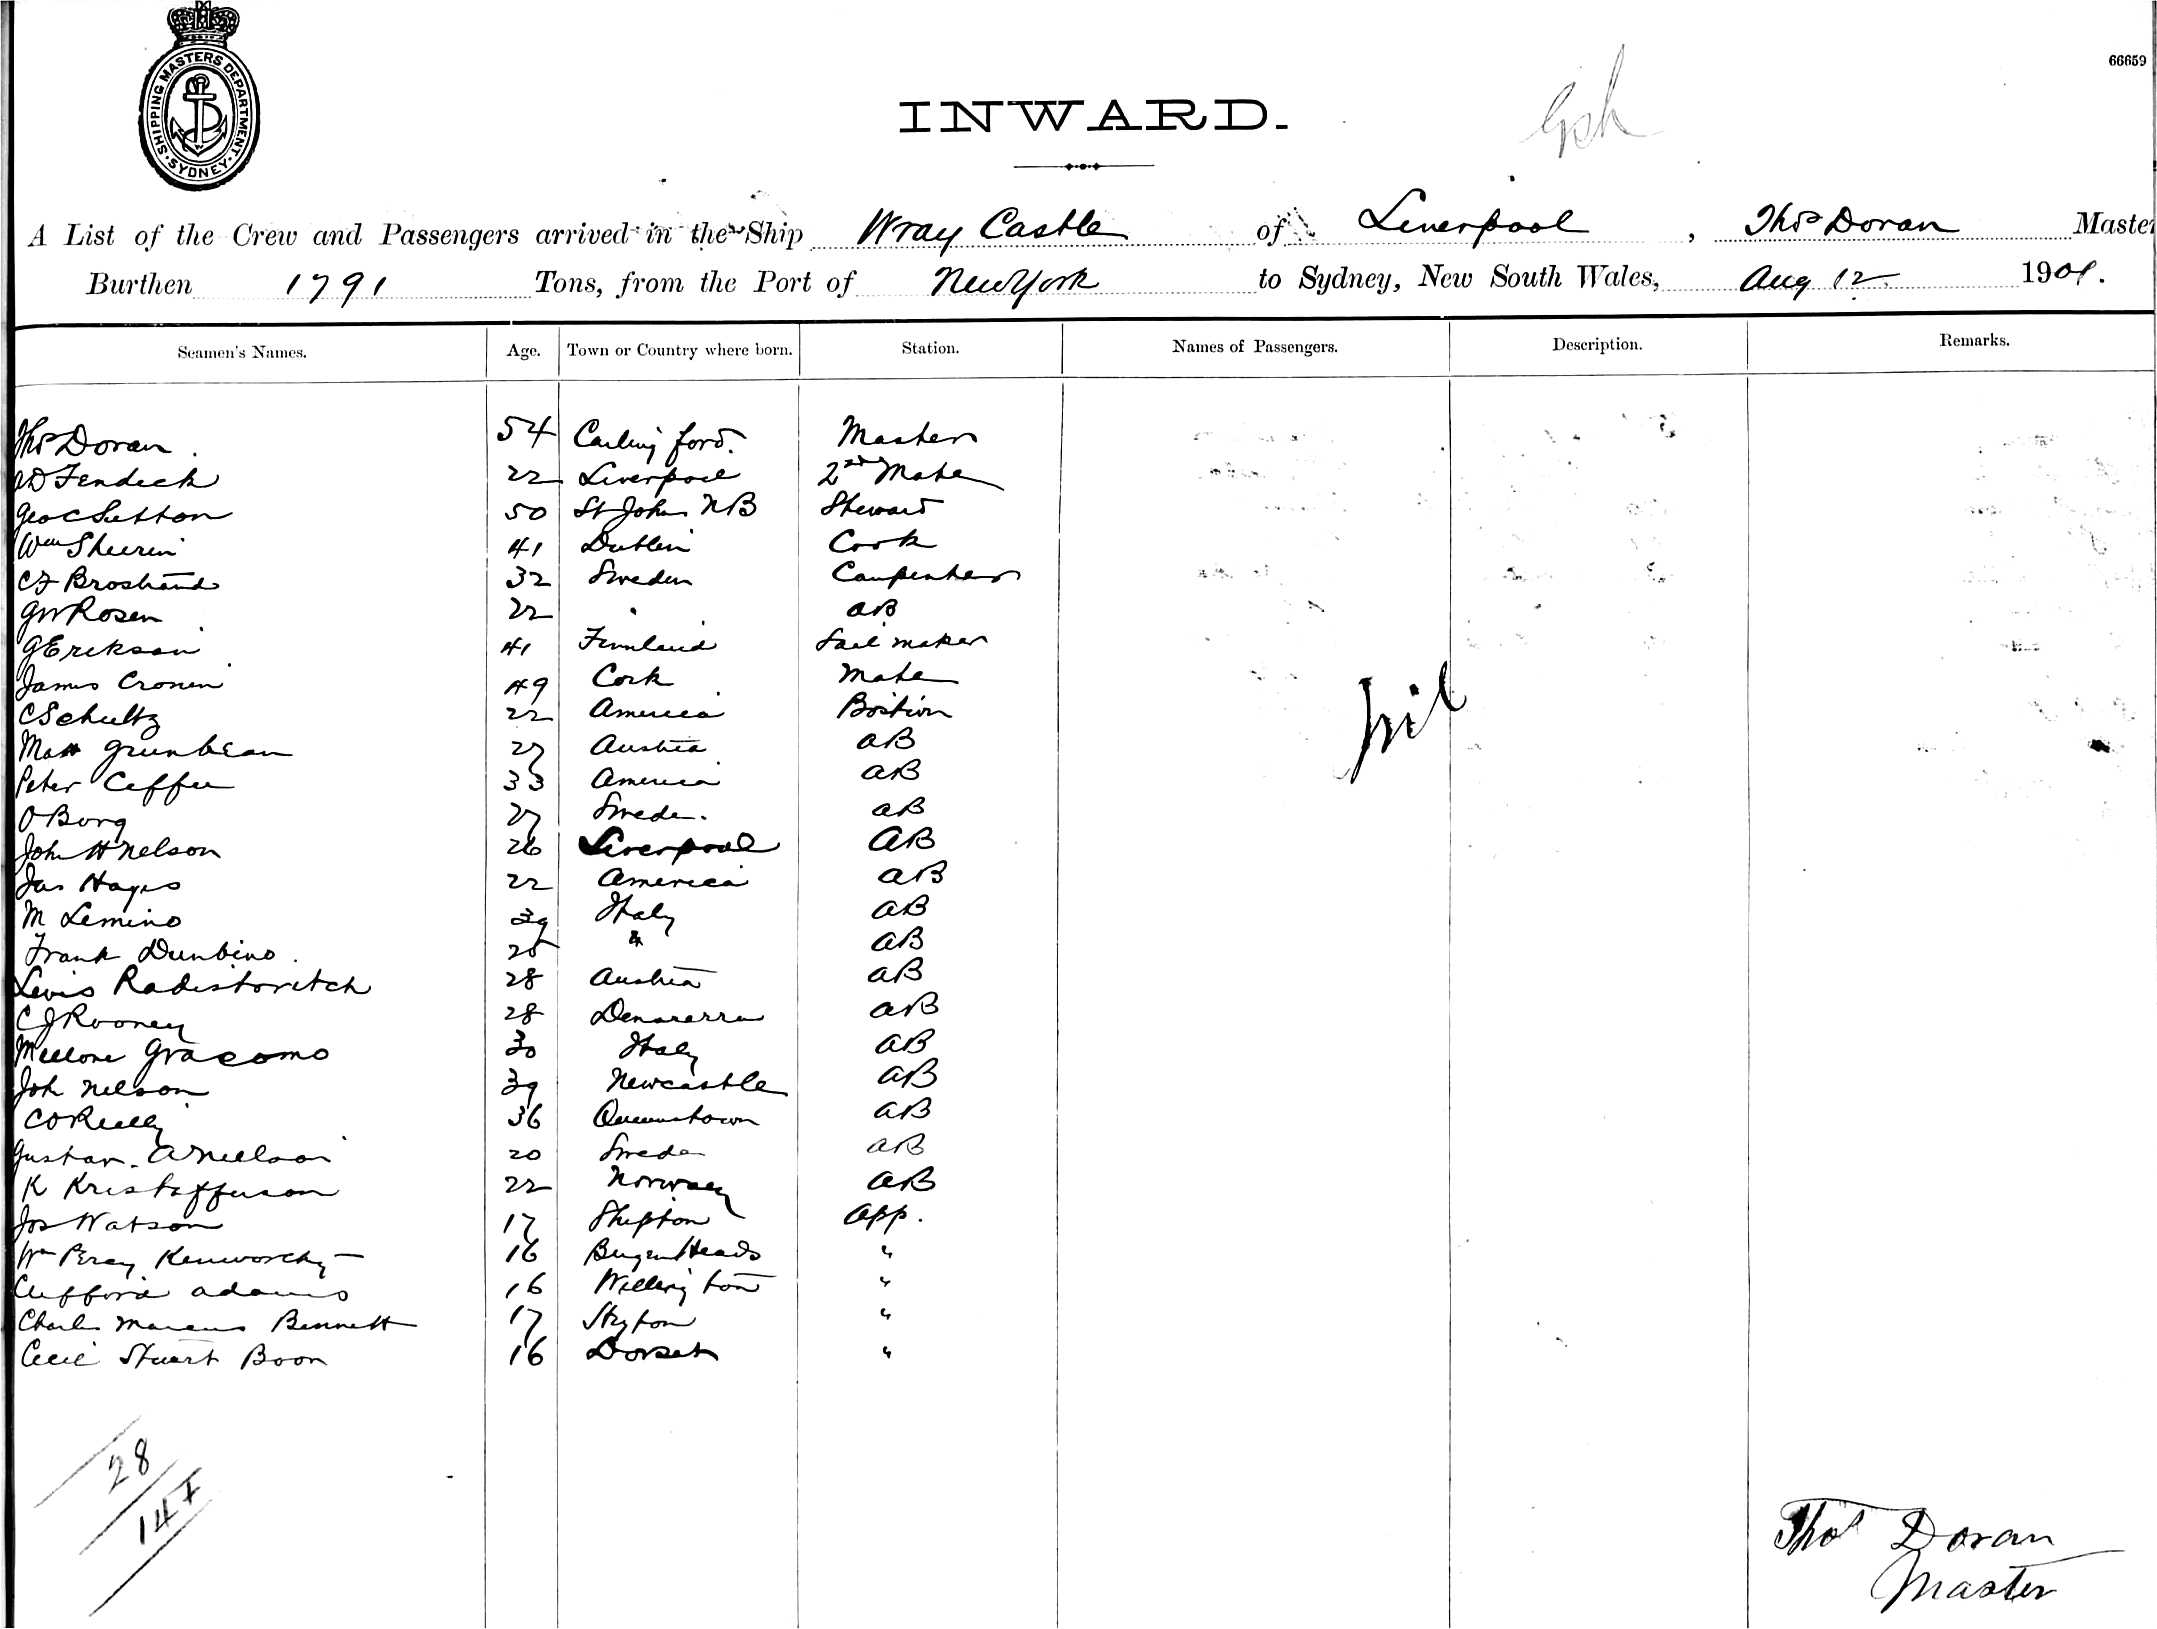 SHIPPING MASTERS DEPARTMENT
SYDNEY
66659
INWARD.
A List of the Crew and Passengers arrived in the Ship Wray Castle of Liverpool, Thos Doran Master
Burthen 1791 Tons, from the Port of New York to Sydney, New South Wales, Aug 12 1901.
Seamen's Names. Age. Town or Country where born. Station. Names of Passengers. Description. Remarks.
Thos Doran. 54 Carlingford. Master
JD Fendick 22 Liverpool 2nd Mate
Geo C Sutton 50 St John NB Steward
Wm Sheerin 41 Dublin Cook
CF Brostrand 32 Sweden Carpenter
GW Rosen 22 " AB
G Erikson 41 Finnland Sail maker
James Cronin 49 Cork Mate
C Schultz 22 America
Matt Grunbean 27 Austria AB
Peter Ceffee 33 America AB
O Borg 27 Sweden. AB
John H Nelson 26 Liverpool AB
Jas Hayes 22 America AB
M Lemino 39 Italy AB
Frank Dunbino. 25 " AB
Levis Radistovitch 28 Austria AB
CJ Rooney 28 AB
Mellone Gracomo 30 Italy AB
Joh Nelson 39 Newcastle AB
C O Reilly 36 Queenstown AB
Gustav. A Neelson 20 Sweden AB
K Kristofferson 22 Norway AB
Jos Watson 17 Shipton App.
Wm Percy Kenworthy 16 "
Clifford Adams 16 Wellington "
Charles Marcus Bennett 17 "
Cecil Stuart Boon 16 Dorset "
Nil
28
14
Thos Doran
Master